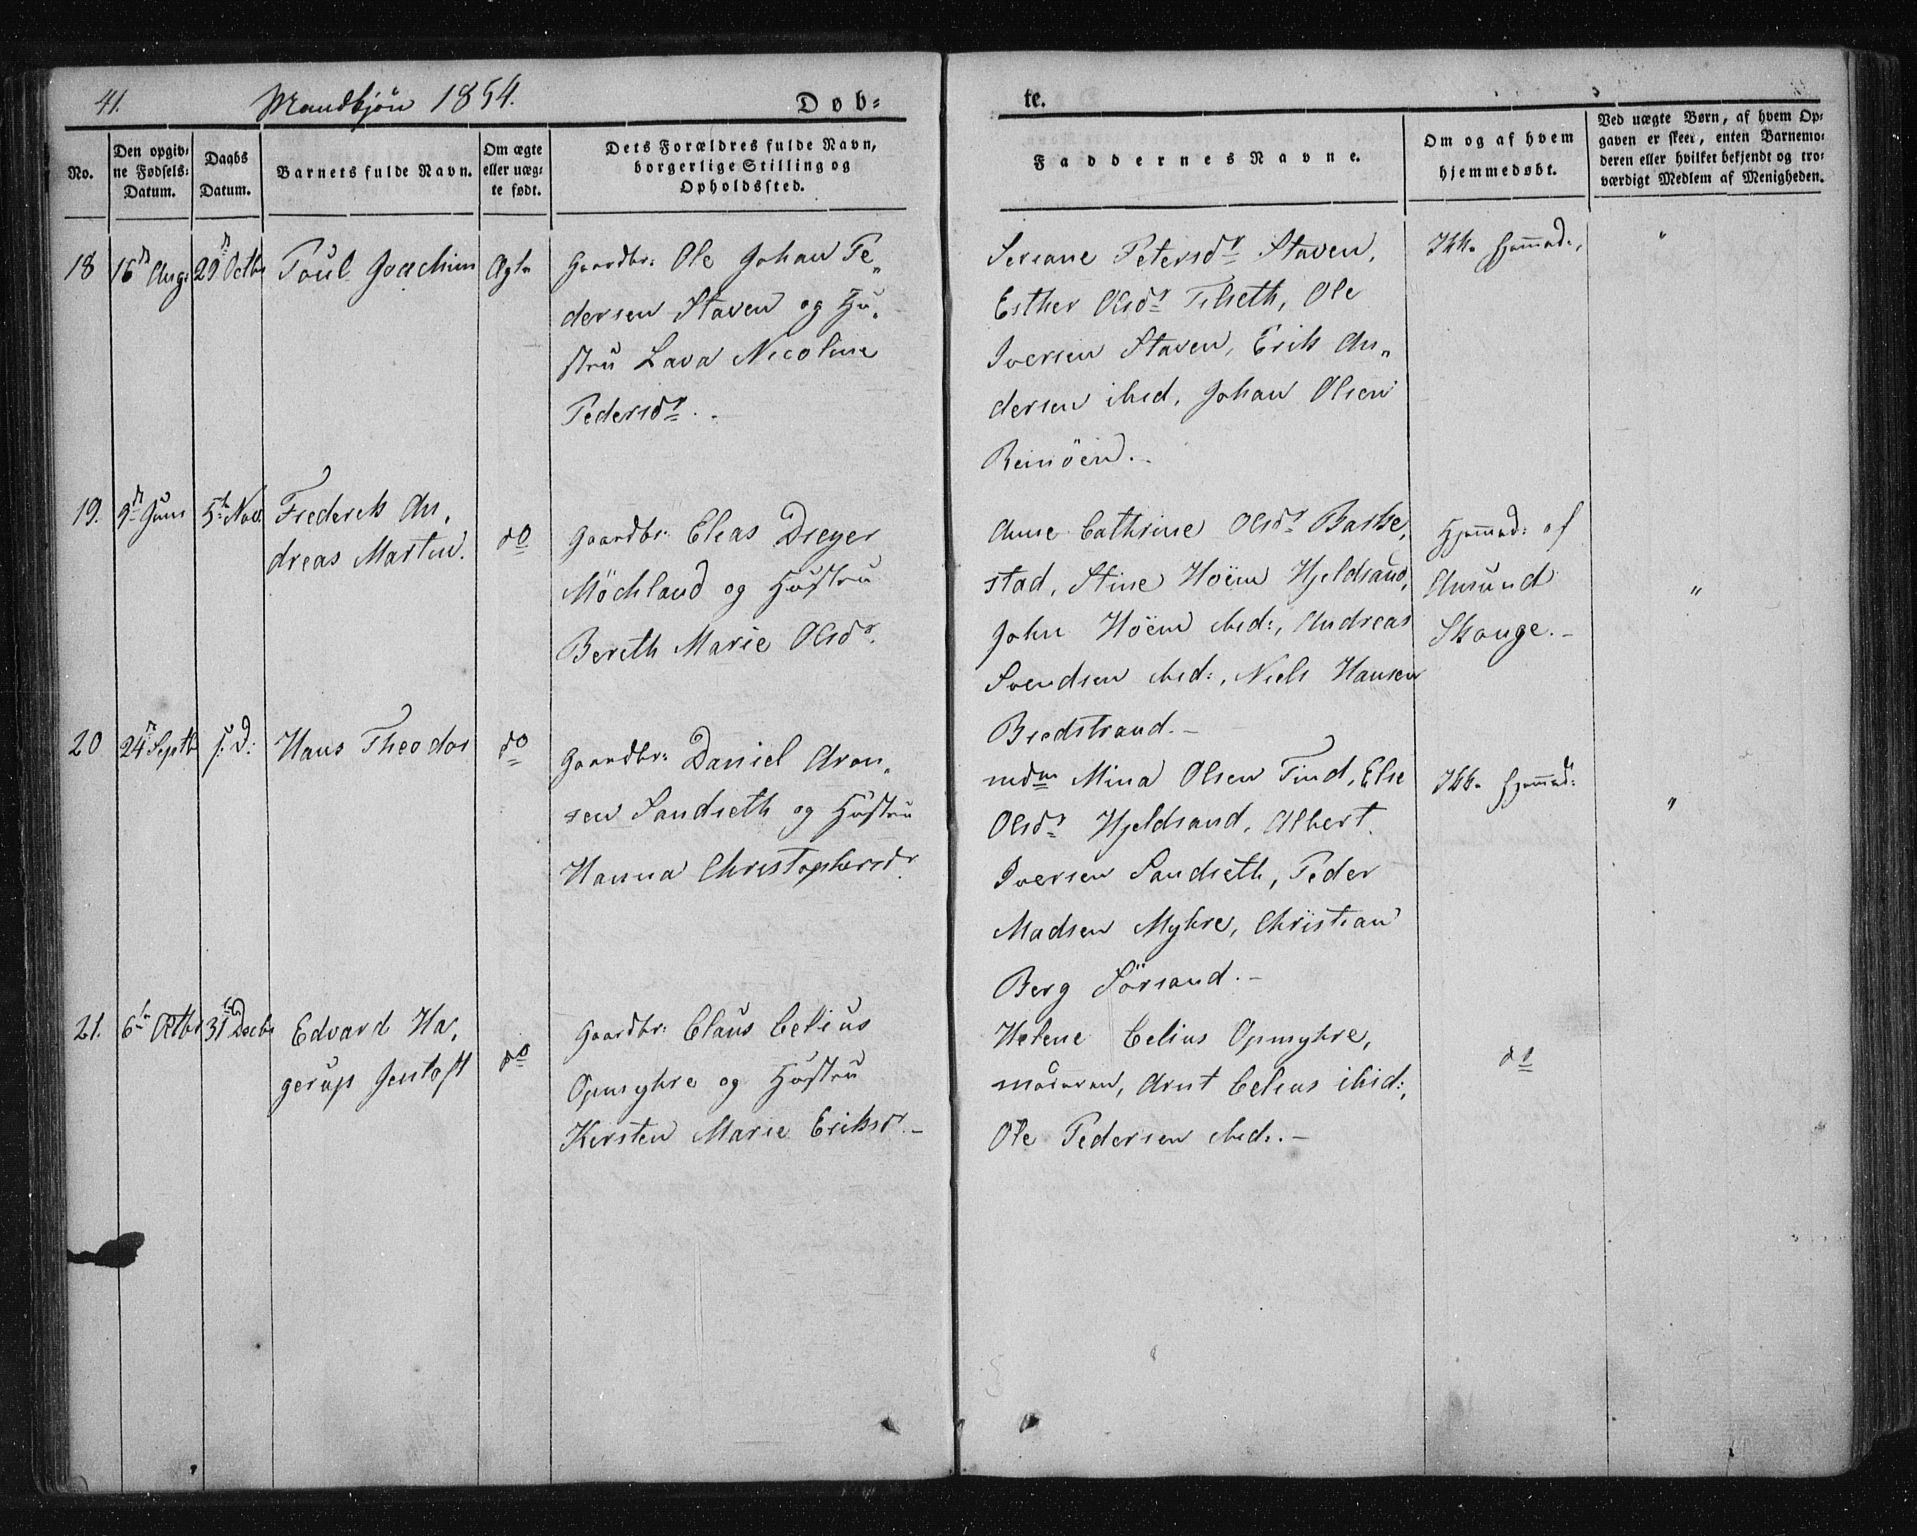 41. Mandkjøn 1854. Døb=
te.
No.
Den opgiv=
ne Fødsels=
Datum.
Daabs
Datum.
Barnets fulde Navn.
Om ægte
eller uæg=
te født.
Dets Forældres fulde Navn,
borgerlige Stilling og
Opholdssted.
Faddernes Navne.
Om og af hvem
hjemmedøbt.
Ved uægte Børn, af hvem Op=
gaven er skeet, enten Barnemo=
deren eller hvilket bekjendt og tro=
værdigt Medlem af Menigheden.
18 16de Aug. 29de Octbr Poul Joachim Ægte
Gaardbr: Ole Johan Pe„
dersen Staven og Hu„
stru Lava Nicoline
Pedersdr. -
Seriane Petersdr Staven,
Esther Olsdr Tilseth, Ole
Iversen Staven, Erik An„
dersen ibid, Johan Olsen
Reinöen. -
Ikke Hjemmed:,
"
19. 9de Juni 5te Nov. Frederik An„
dreas Martin.
do
Gaardbr: Elias Dreyer
Möchland og Hustru
Bereth Marie Olsdr.
Anne Cathrine Olsdr Barke,
stad, Stine Höem Hjeldsand,
John Höem ibid:, Andreas
Svendsen ibid:, Niels Hansen
Bredstrand. -
Hjemmed: af
Amund
Skouge. -
"
20 24de Septbr s. D: Hans Theodor do
Gaardbr: Daniel Aron„
sen Sandseth og Hustru
Hanna Christophersdr.
Mdm Mina Olsen Tind, Else
Olsdr Hjeldsand, Albert
Iversen Sandseth, Peder
Madsen Myhre, Christian
Berg Sörsand. -
Ikke Hjemmed:
"
21. 6te Octbr 31te Decbr Edvard Ha„
gerup Jentoft
do
Gaardbr: Claus Celius
Opmyhre og Hustru
Kirsten Marie Eriksdr. -
Helene Celius Opmyhre,
Moderen, Arnt Celius ibid:,
Ole Pedersen ibid:. -
do